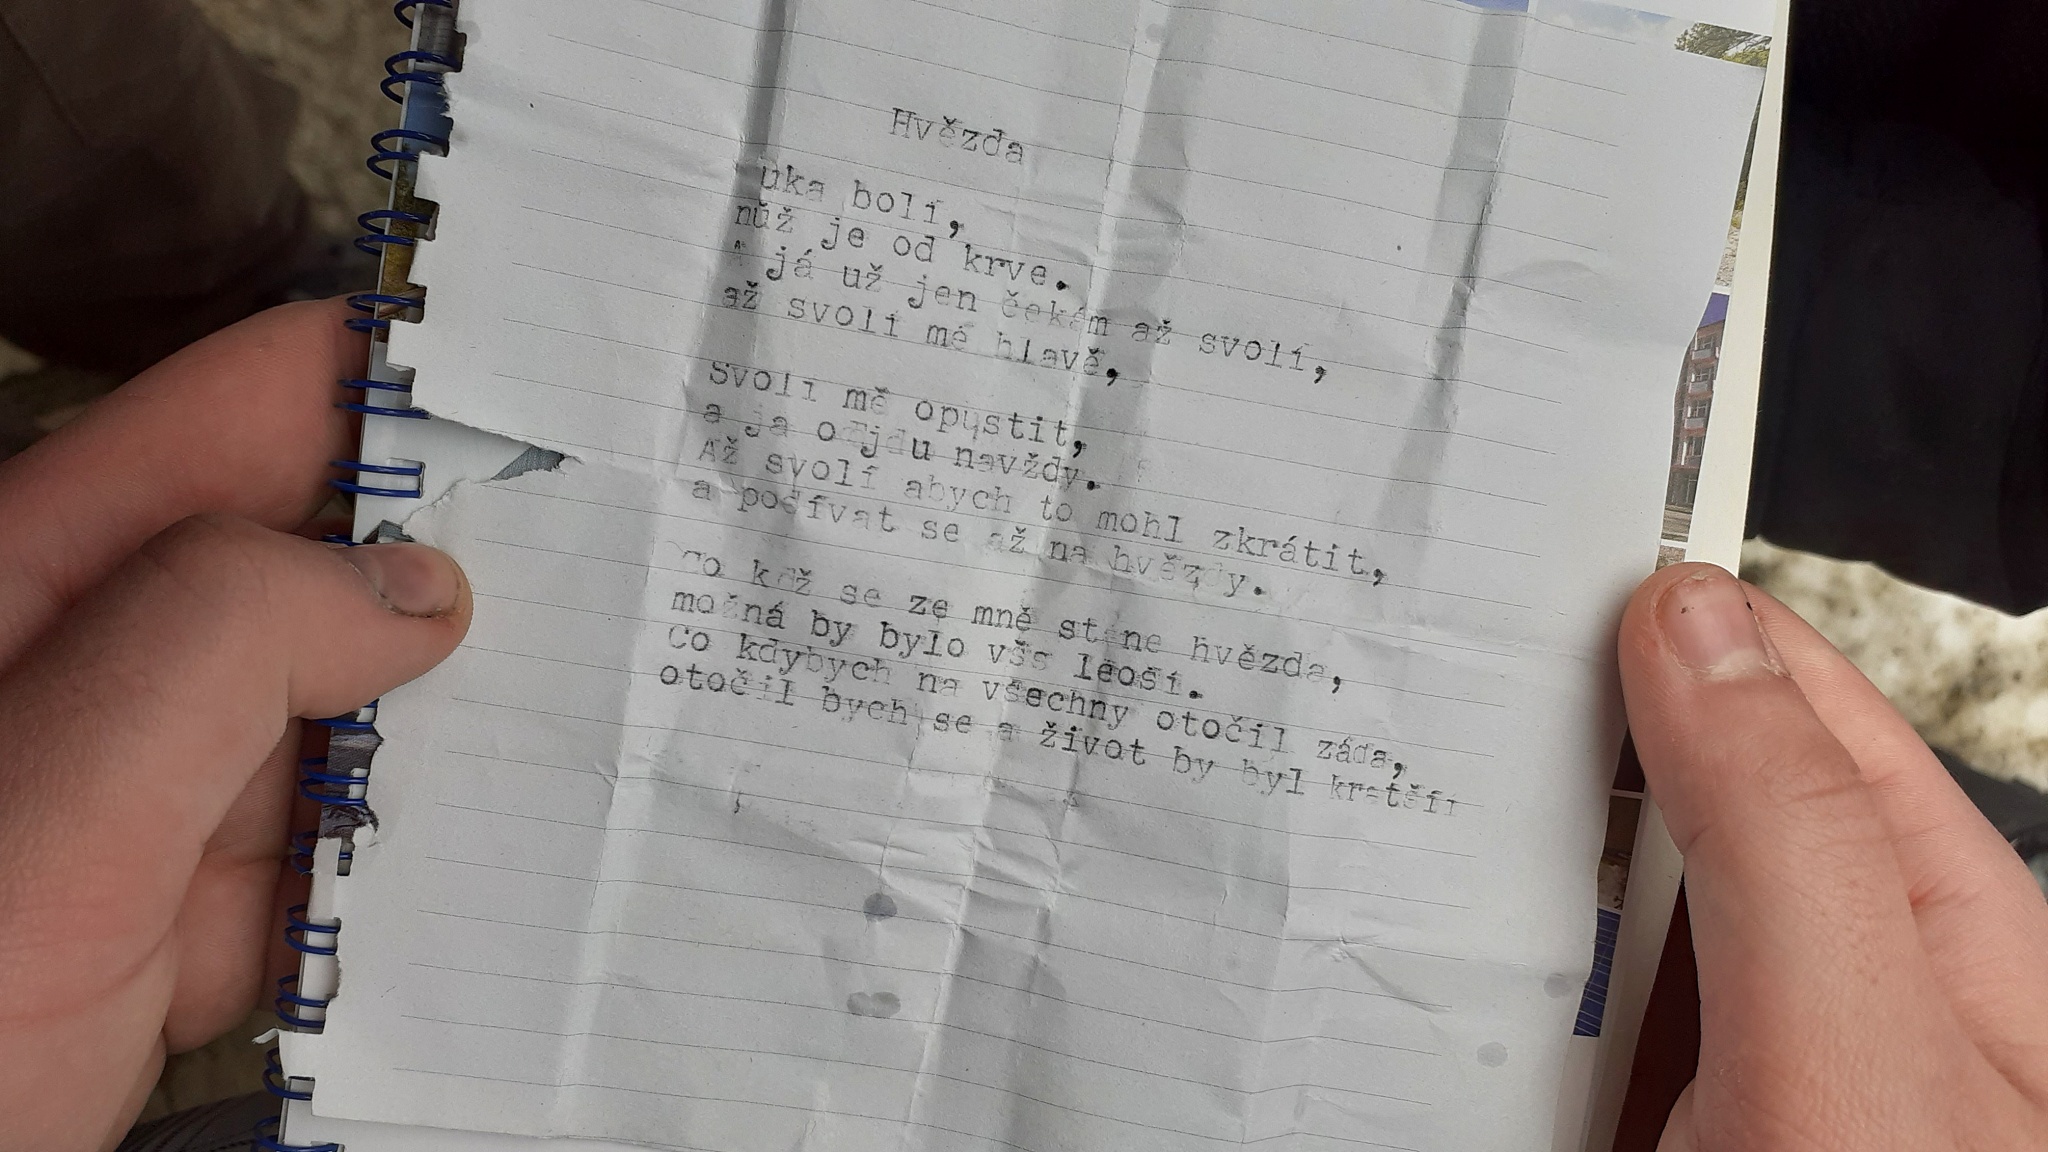 Hvězda
uka bolí,
nůž je od krve.
A já už jen čekám až svolí,
až svolí mé hlavě,
Svolí mě opustit,
a ja odjdu navždy.
Až svolí abych to mohl zkrátit,
a podívat se až na hvězdy.
Co kdž se ze mně stane hvězda,
možná by bylo všs leoší.
Co kdybych na všechny otočil záda,
otočil bych se a život by byl kratší